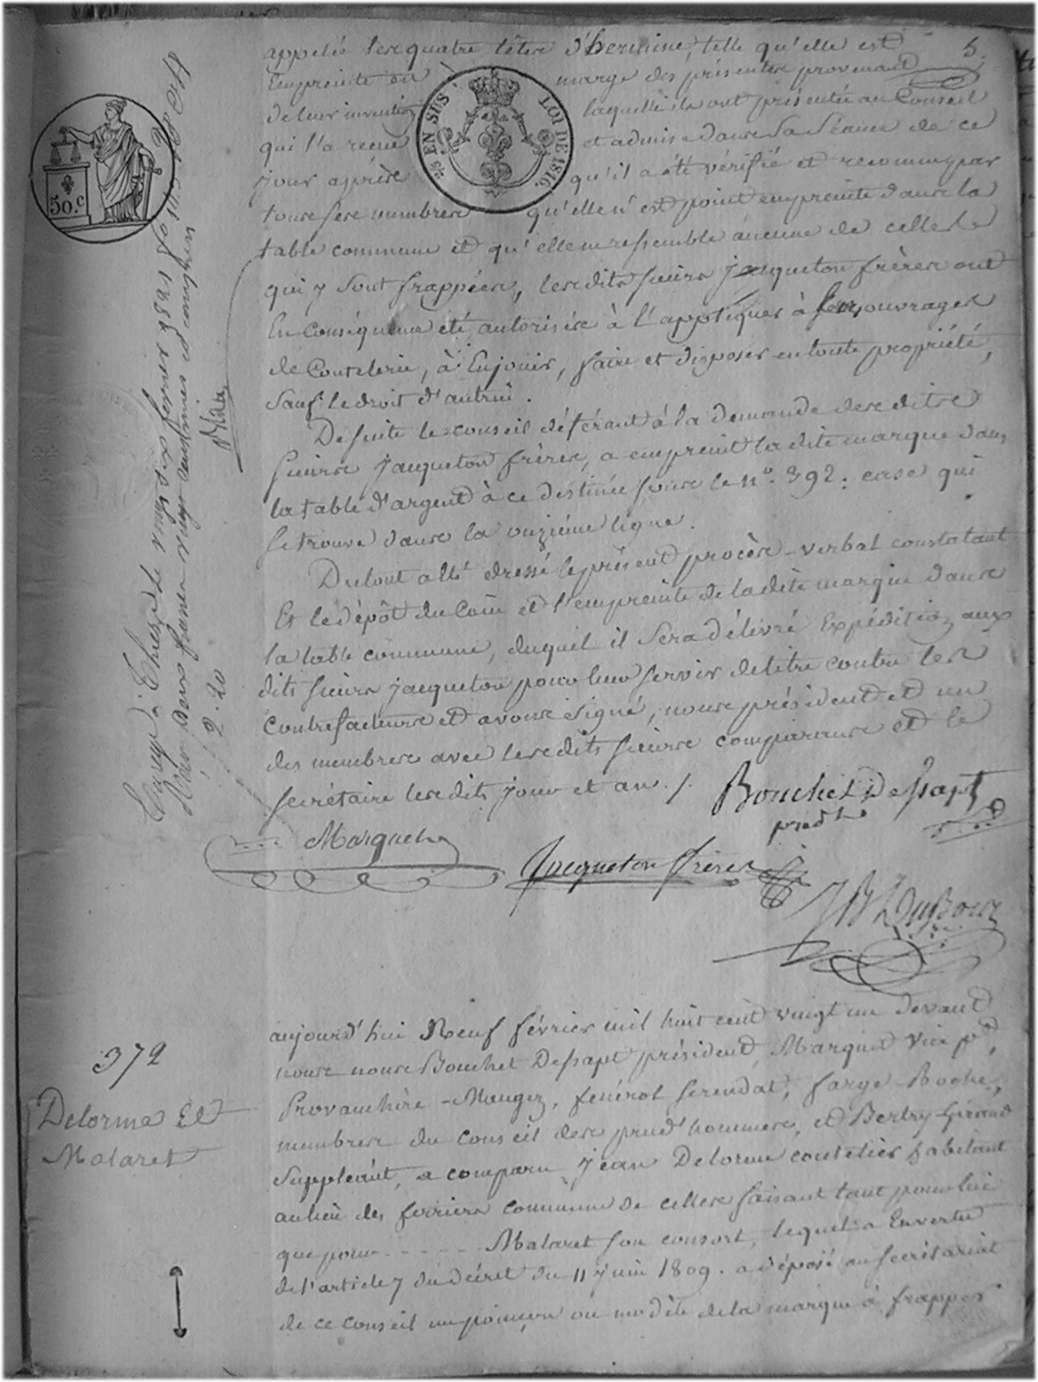 5.
appelée les quatre têtes d'hermine, telle qu'elle est
Empreinte en marge des présentes provenant
de leur invention laquelle ils ont présentée au Conseil
qui l'a reçue et admise dans sa séance de ce
jour après qu'il a été vérifié et reconnu par
tous ses membres qu'elle n'est point empreinte dans la
table commune et qu'elle ne ressemble aucune de celles
qui y sont frappées, lesdits sieurs jacqueton frères ont
En conséquence été autorisés à l'appliquer à leurs ouvrages
de Coutelerie, à En jouir, faire et disposer en toute propriété,
sauf le droit d'autrui.
De suite le conseil déférant à la demande des dits
sieurs jacqueton frères, a empreint la dite marque dans
la table d'argent à ce destinée sous le n.º 392: case qui
se trouve dans la onzième ligne.
Du tout a été dressé le présent procès-verbal constatant
Et le dépôt du Coin et l'empreinte de la dite marque dans
la table commune, duquel il sera délivré Expédition aux
dits sieurs jacqueton pour leur servir de titre contre les
contrefacteurs et avons signé, nous président et un
des membres avec lesdits sieurs comparans et le
secrétaire lesdits jour et an ./.
Bouchet Dessapt
prudt
Marquet
Jacqueton frères
JB Dubour
EN SUS
LOI DE 1816.
50.C
Enregé à Thiers le vingt six fevrier 1821 fo
Reçu deux francs vingt centimes
2.20
372
Delorme Et
Malaret
aujourd'hui Neuf février mil huit cent vingt un devant
nous nous Bouchet Dessapt président, Marquet vice pt,
Provanchère-Maugez, fenérol serendat, farge-Boche,
membres du conseil des prud'hommes, et Bertry-Girard
suppléant, a comparu jean Delorme coutelier habitant
au lieu des ferriers commune de celles faisant tant pour lui
que pour - - - - - - Malaret son consort, lequel a En vertu
de l'article 7 du décret du 11 juin 1809. a déposé au secrétariat
de ce conseil un poinçon ou modèle de la marque à frapper